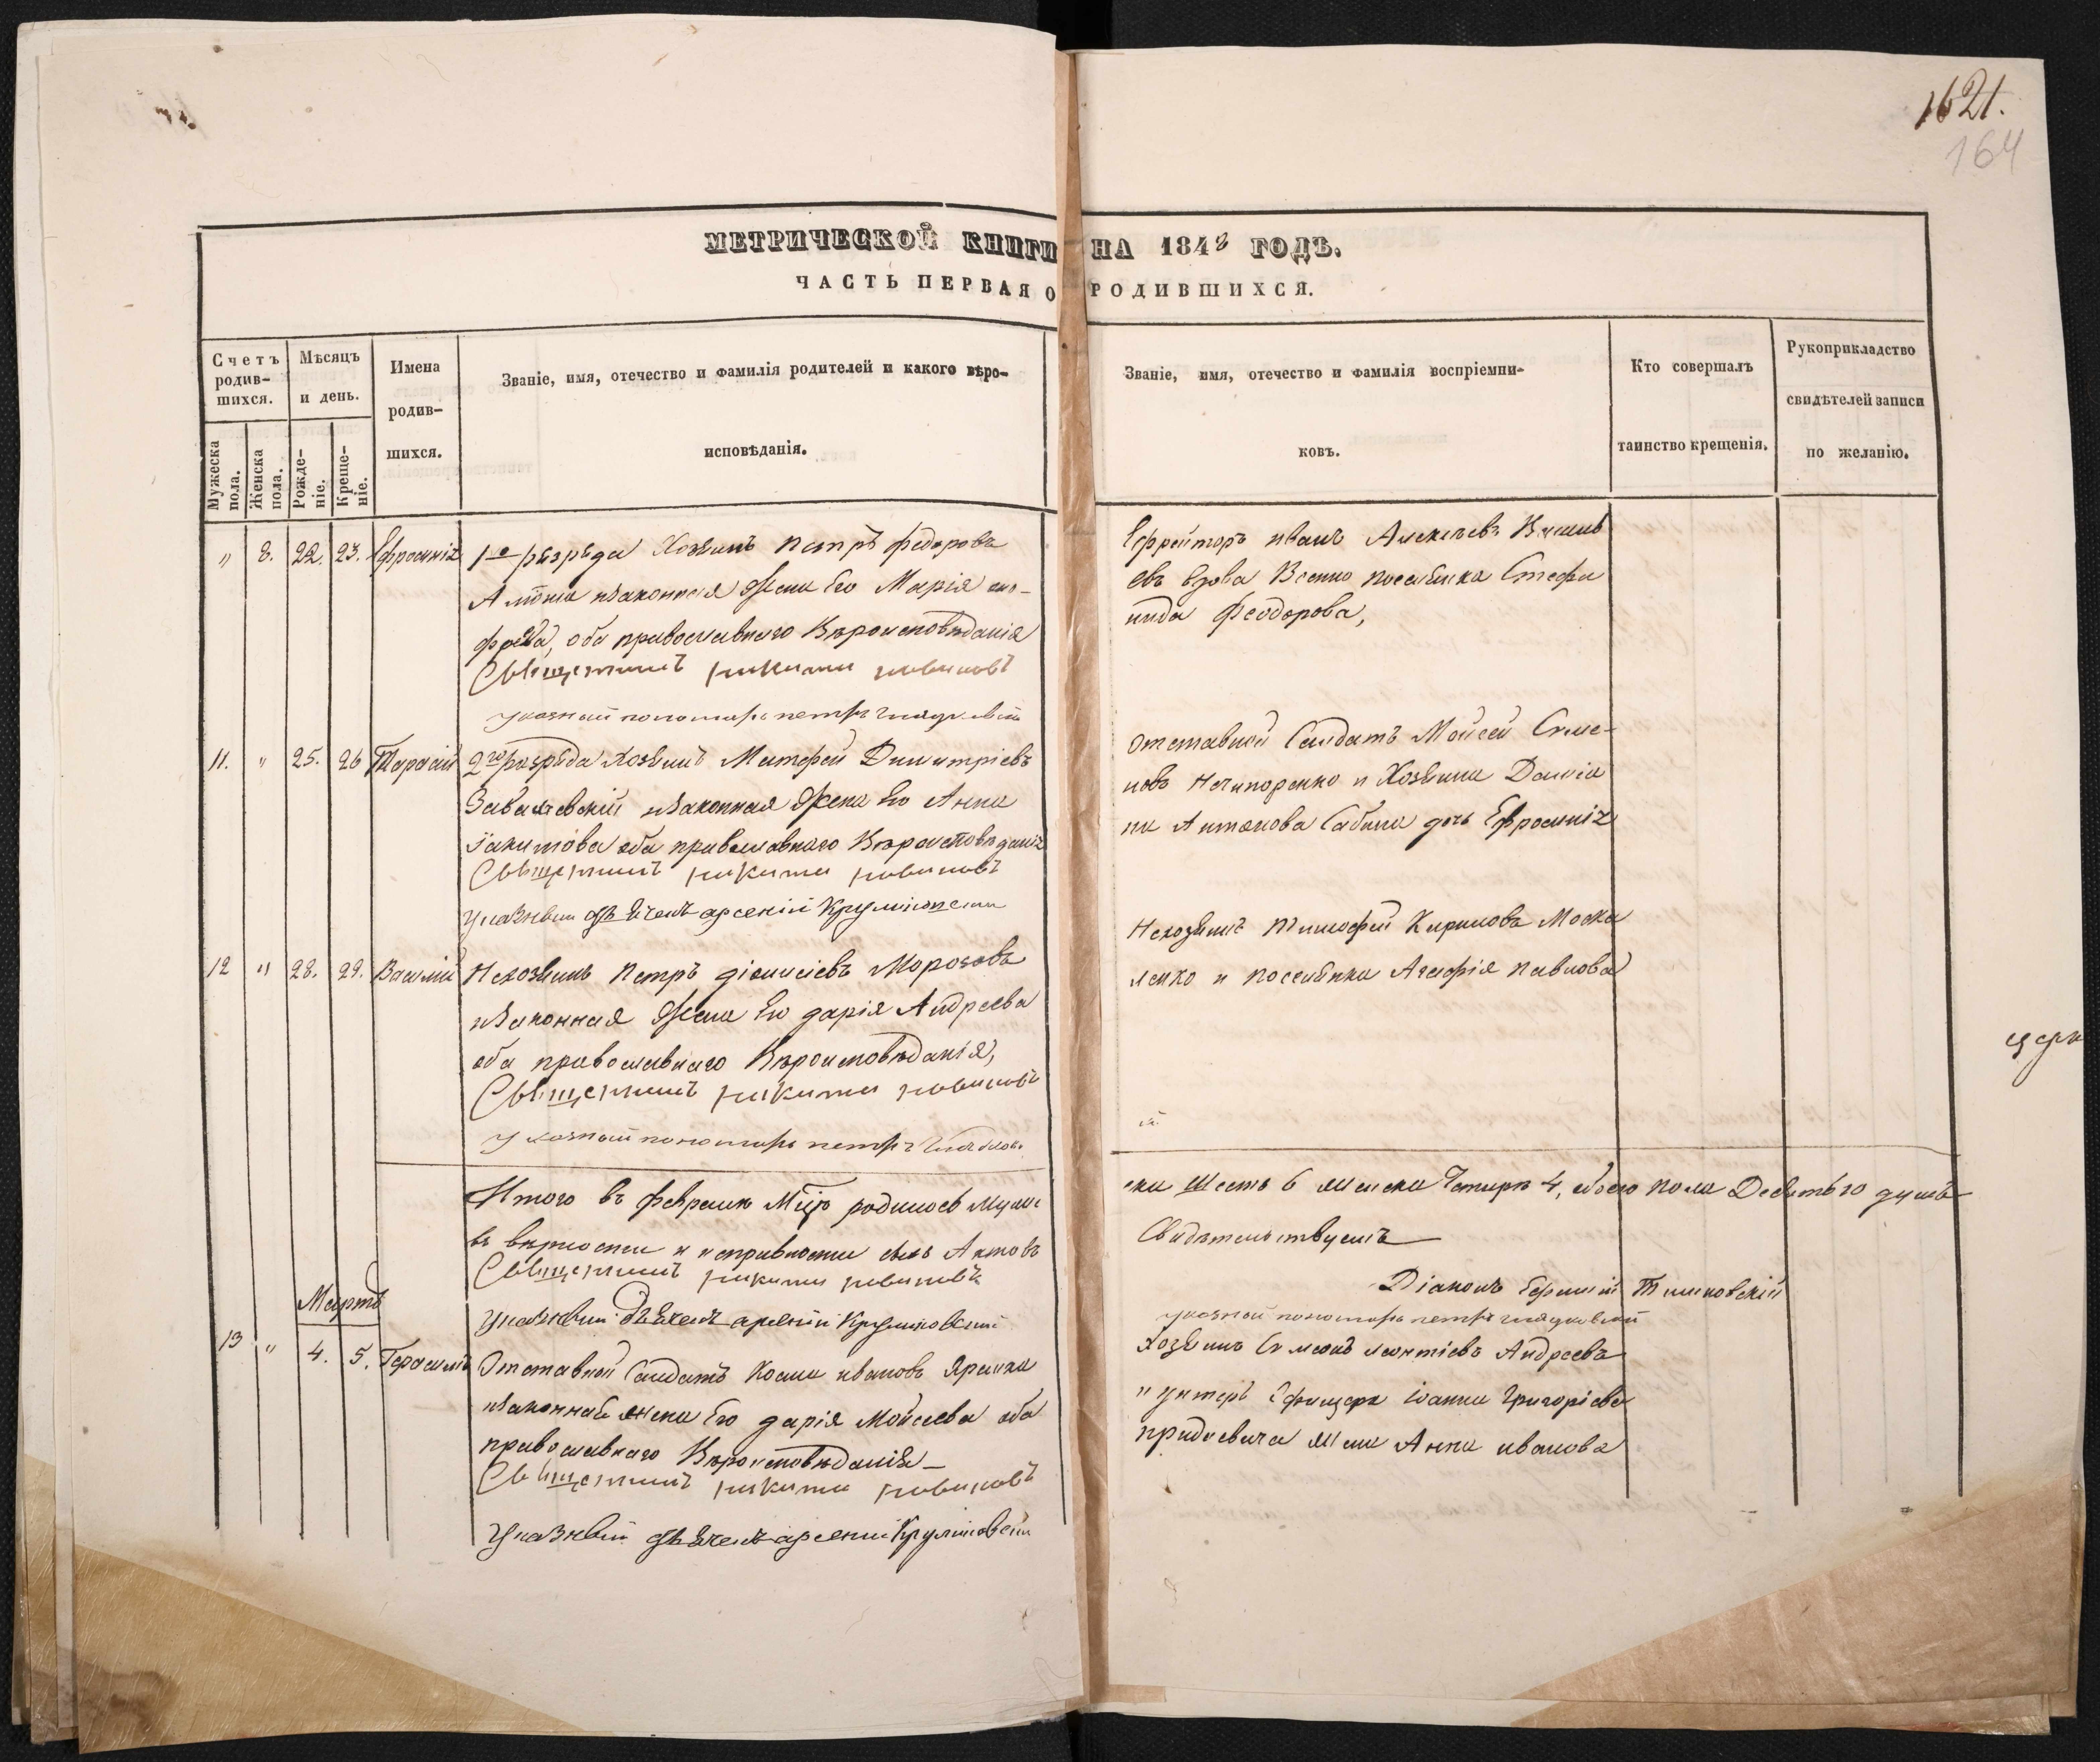 1621.
164
МЕТРИЧЕСКОЙ КНИГИ НА 1848 ГОДЪ.
ЧАСТЬ ПЕРВАЯ О РОДИВШИХСЯ.
Счетъ родив-
шихся.
Мѣсяцъ
и день.
Мужеска пола.
Женска пола.
Рожде-
ніе.
Креще-
ніе.
Имена
родив-
шихся.
Званіе, имя, отечество и фамилія родителей и какого вѣро-
исповѣданія.
Званіе, имя, отечество и фамилія воспріемни-
ковъ.
Кто совершалъ
таинство крещенія.
Рукоприкладство
свидѣтелей записи
по желанію.
" 8. 22. 23. Ефросинія 1го разряда Хозяинъ Петръ Федоровъ
изаконная Жена Его Марія оно-
фрева, оба православнаго Вѣроисповѣданія
Священникъ никита новиковъ
указный пономарь петръ
Ефрейторъ иванъ Алексѣевъ
евъ вдова Военно поселянка Стефа
нида Феодорова,
11. " 25. 26 Тарасій 2го разряда Хозяинъ Матфей Димитріевъ
изаконная Жена Его Анна
іакимова оба православнаго Вѣроисповѣданія
Священникъ никита новиковъ
указный дьячекъ арсеній
Отставной Салдатъ Мойсей Симе-
новъ Нечипоренко и Хозяина Данііа
ла Антонова Сабина дочь Ефросинія
12 " 28. 29. Василій Нехозяинъ Петръ діонисіевъ Морозовъ
изаконная Жена Его дарія Андреева
оба православнаго Вѣроисповѣданія,
Священникъ никита новиковъ
указный пономарь петръ
Нехозяинъ Тимофей Кириловъ Моска
ленко и поселянка Агафія павлова
церк
Итого въ февралѣ Мцѣ родилось Муже
ска Шесть 6 женска Четыре 4, обоего пола Десять 10 душъ
въ вѣрности и исправности сихъ Актовъ
Свидѣтельствуемъ
Священникъ никита новиковъ
Діаконъ
указный дьячекъ арсеній
указный пономарь петръ
Мартъ
13 " 4. 5. Герасимъ Отставной Салдатъ Косма ивановъ
изаконная жена Его дарія Мойсеева оба
православнаго Вѣроисповѣданія
Священникъ никита новиковъ
указный дьячекъ арсеній
Хозяинъ Симеонъ леонтіевъ Андреевъ
и унтеръ Офицера іоанна Григоріева
жена Анна иванова